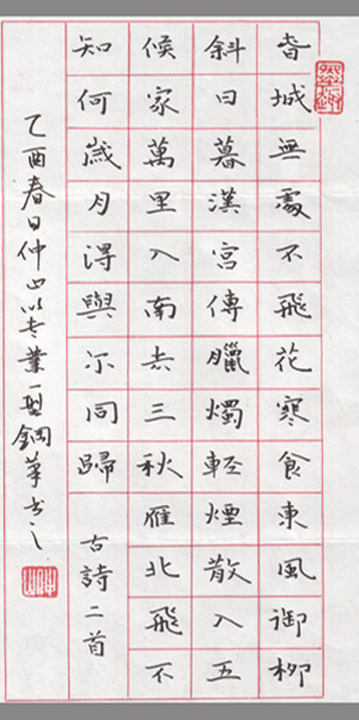 春城無處不飛花寒食東風御柳
斜日暮漢宮傳臘燭輕煙散入五
侯家萬里人南去三秋雁北飛不
知何歲月得與尔同歸 古詩二首
乙酉春日仲山以专業型鋼筆书之